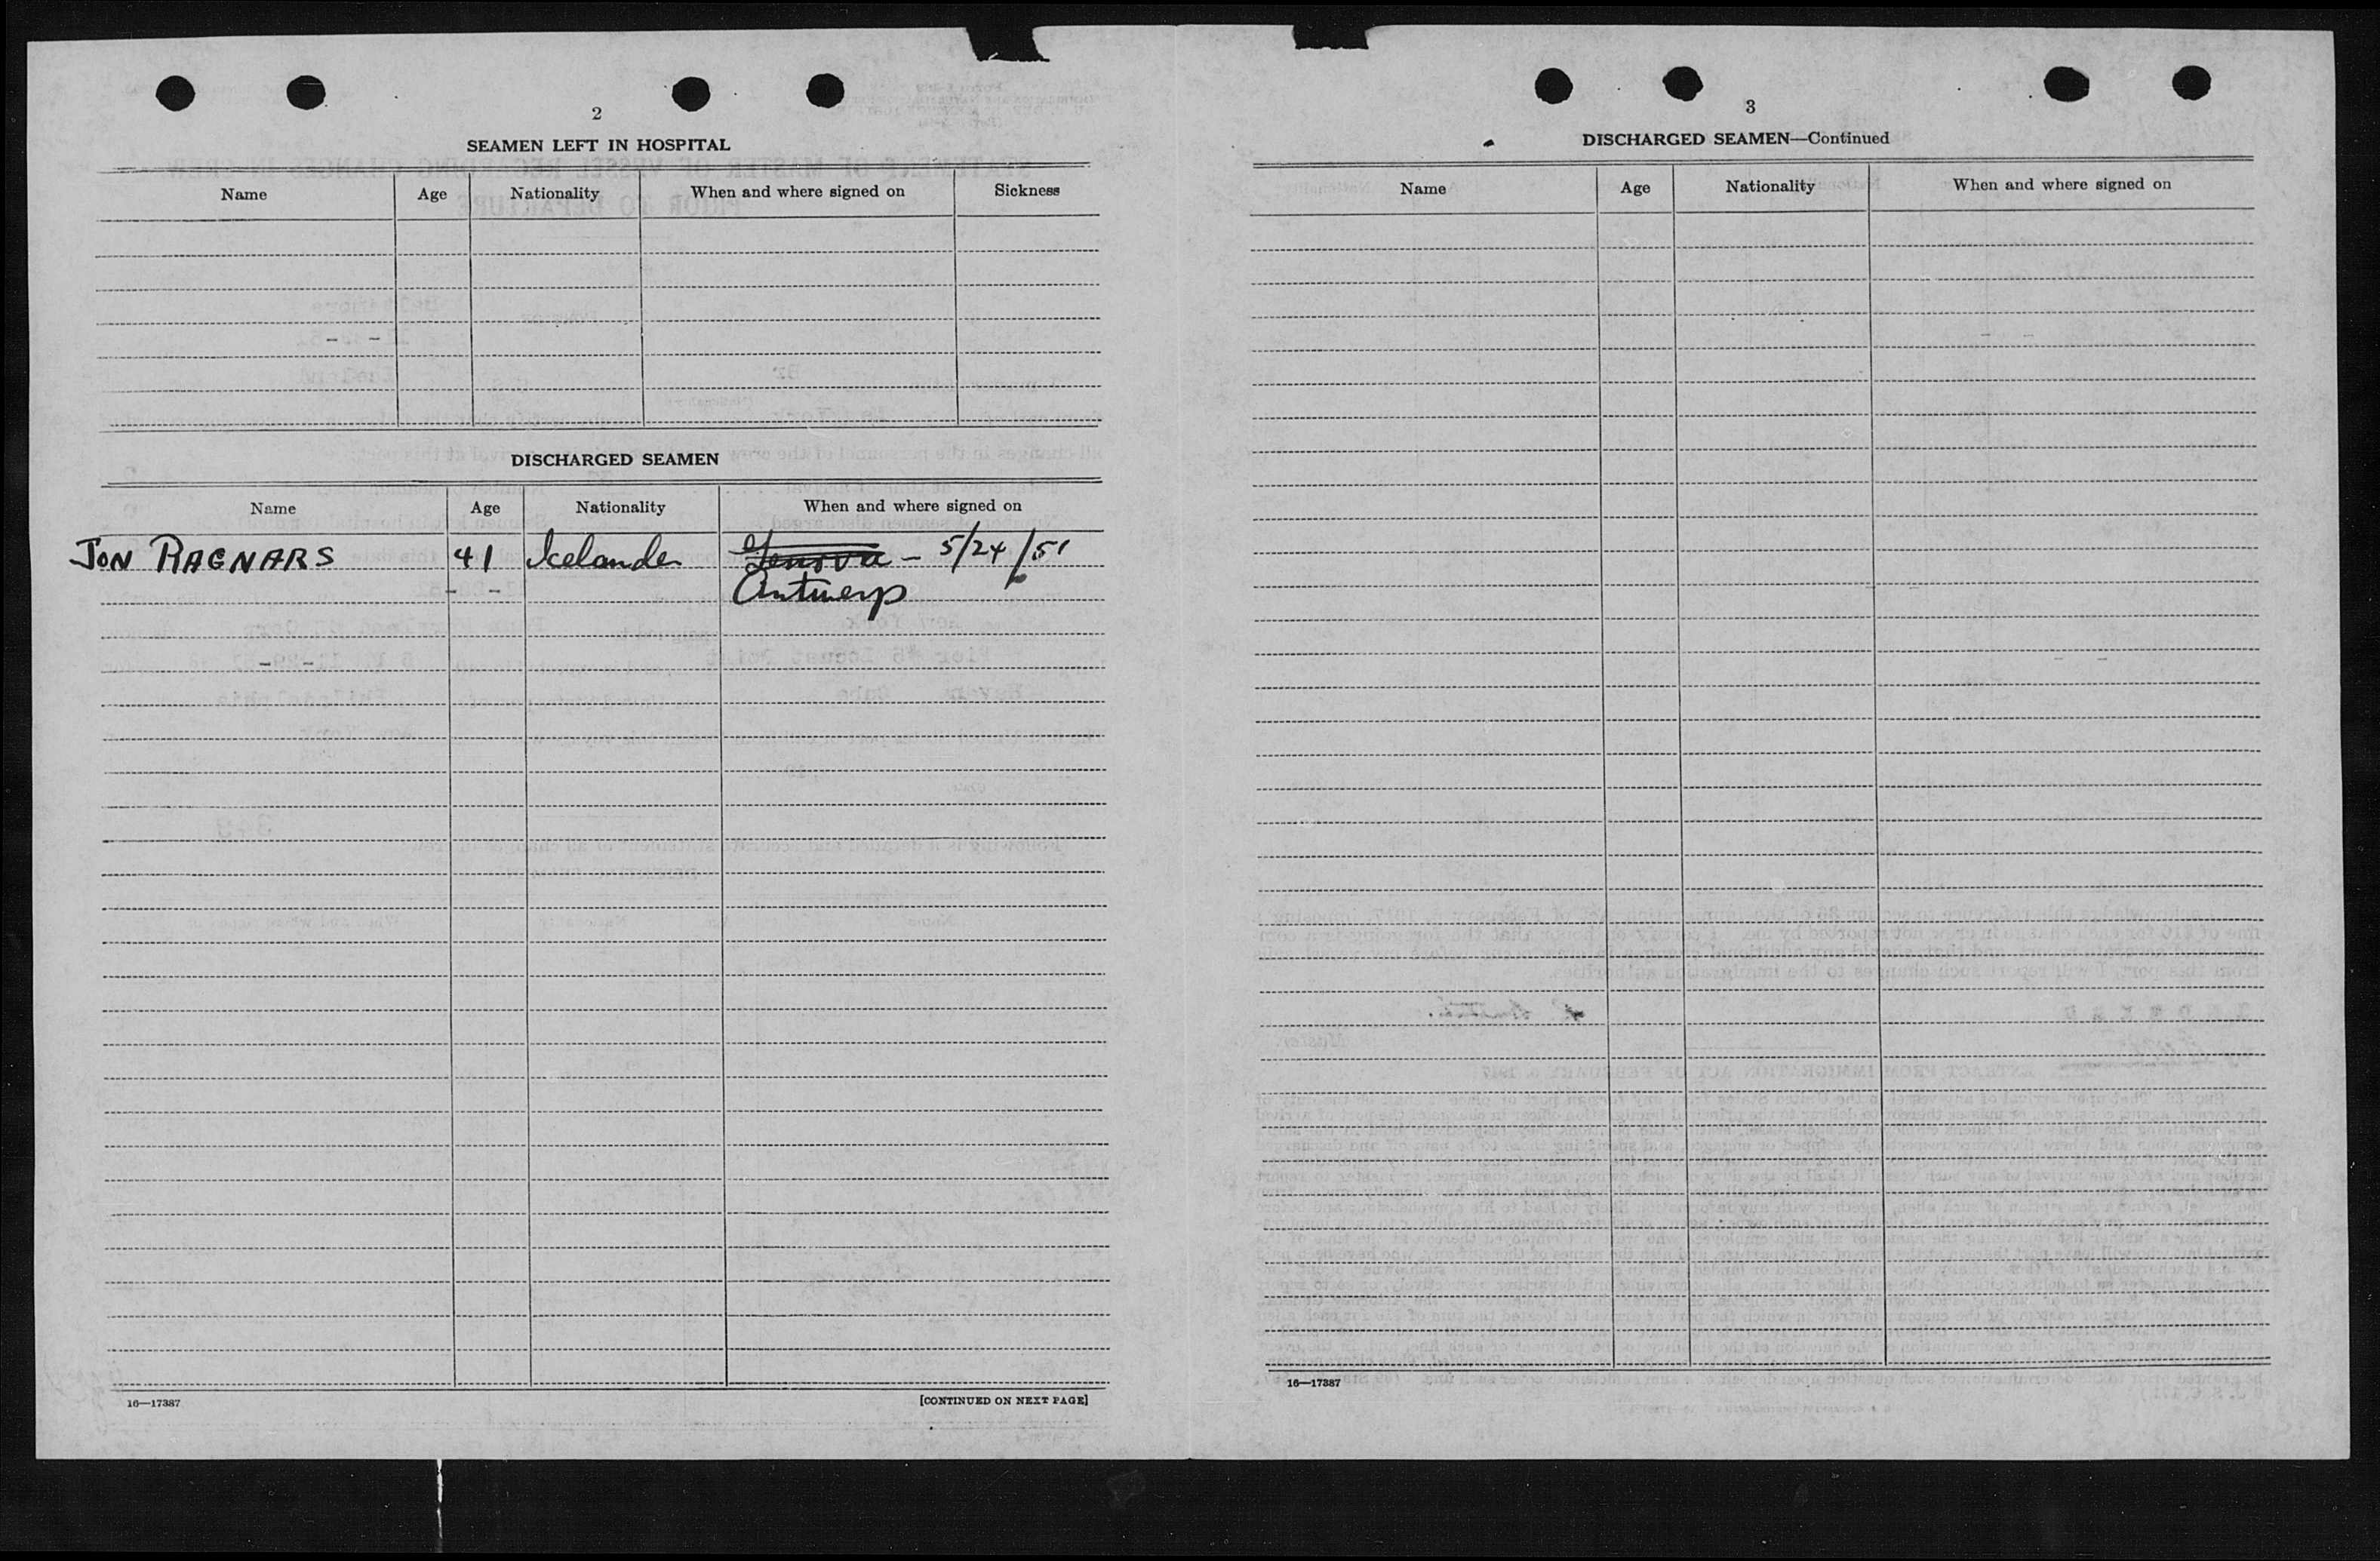 2
SEAMEN LEFT IN HOSPITAL
Name Age Nationality When and where signed on Sickness
DISCHARGED SEAMEN
Name Age Nationality When and where signed on
JON RAGNARS 41 Icelander Genova - 5/24/51
Antwerp
16—17387 [CONTINUED ON NEXT PAGE]
3
DISCHARGED SEAMEN—Continued
Name Age Nationality When and where signed on
16—17387